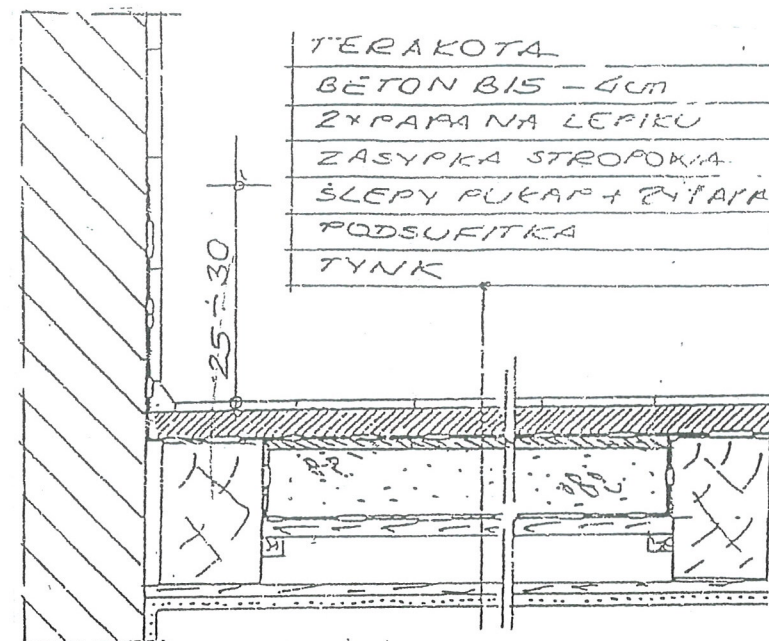 TERAKOTA
BETON B15 - 4cm
2xPAPA NA LEPIKU
ZASYPKA STROPOWA
ŚLEPY PUŁAP + 2xPAPA
PODSUFITKA
TYNK
25÷30